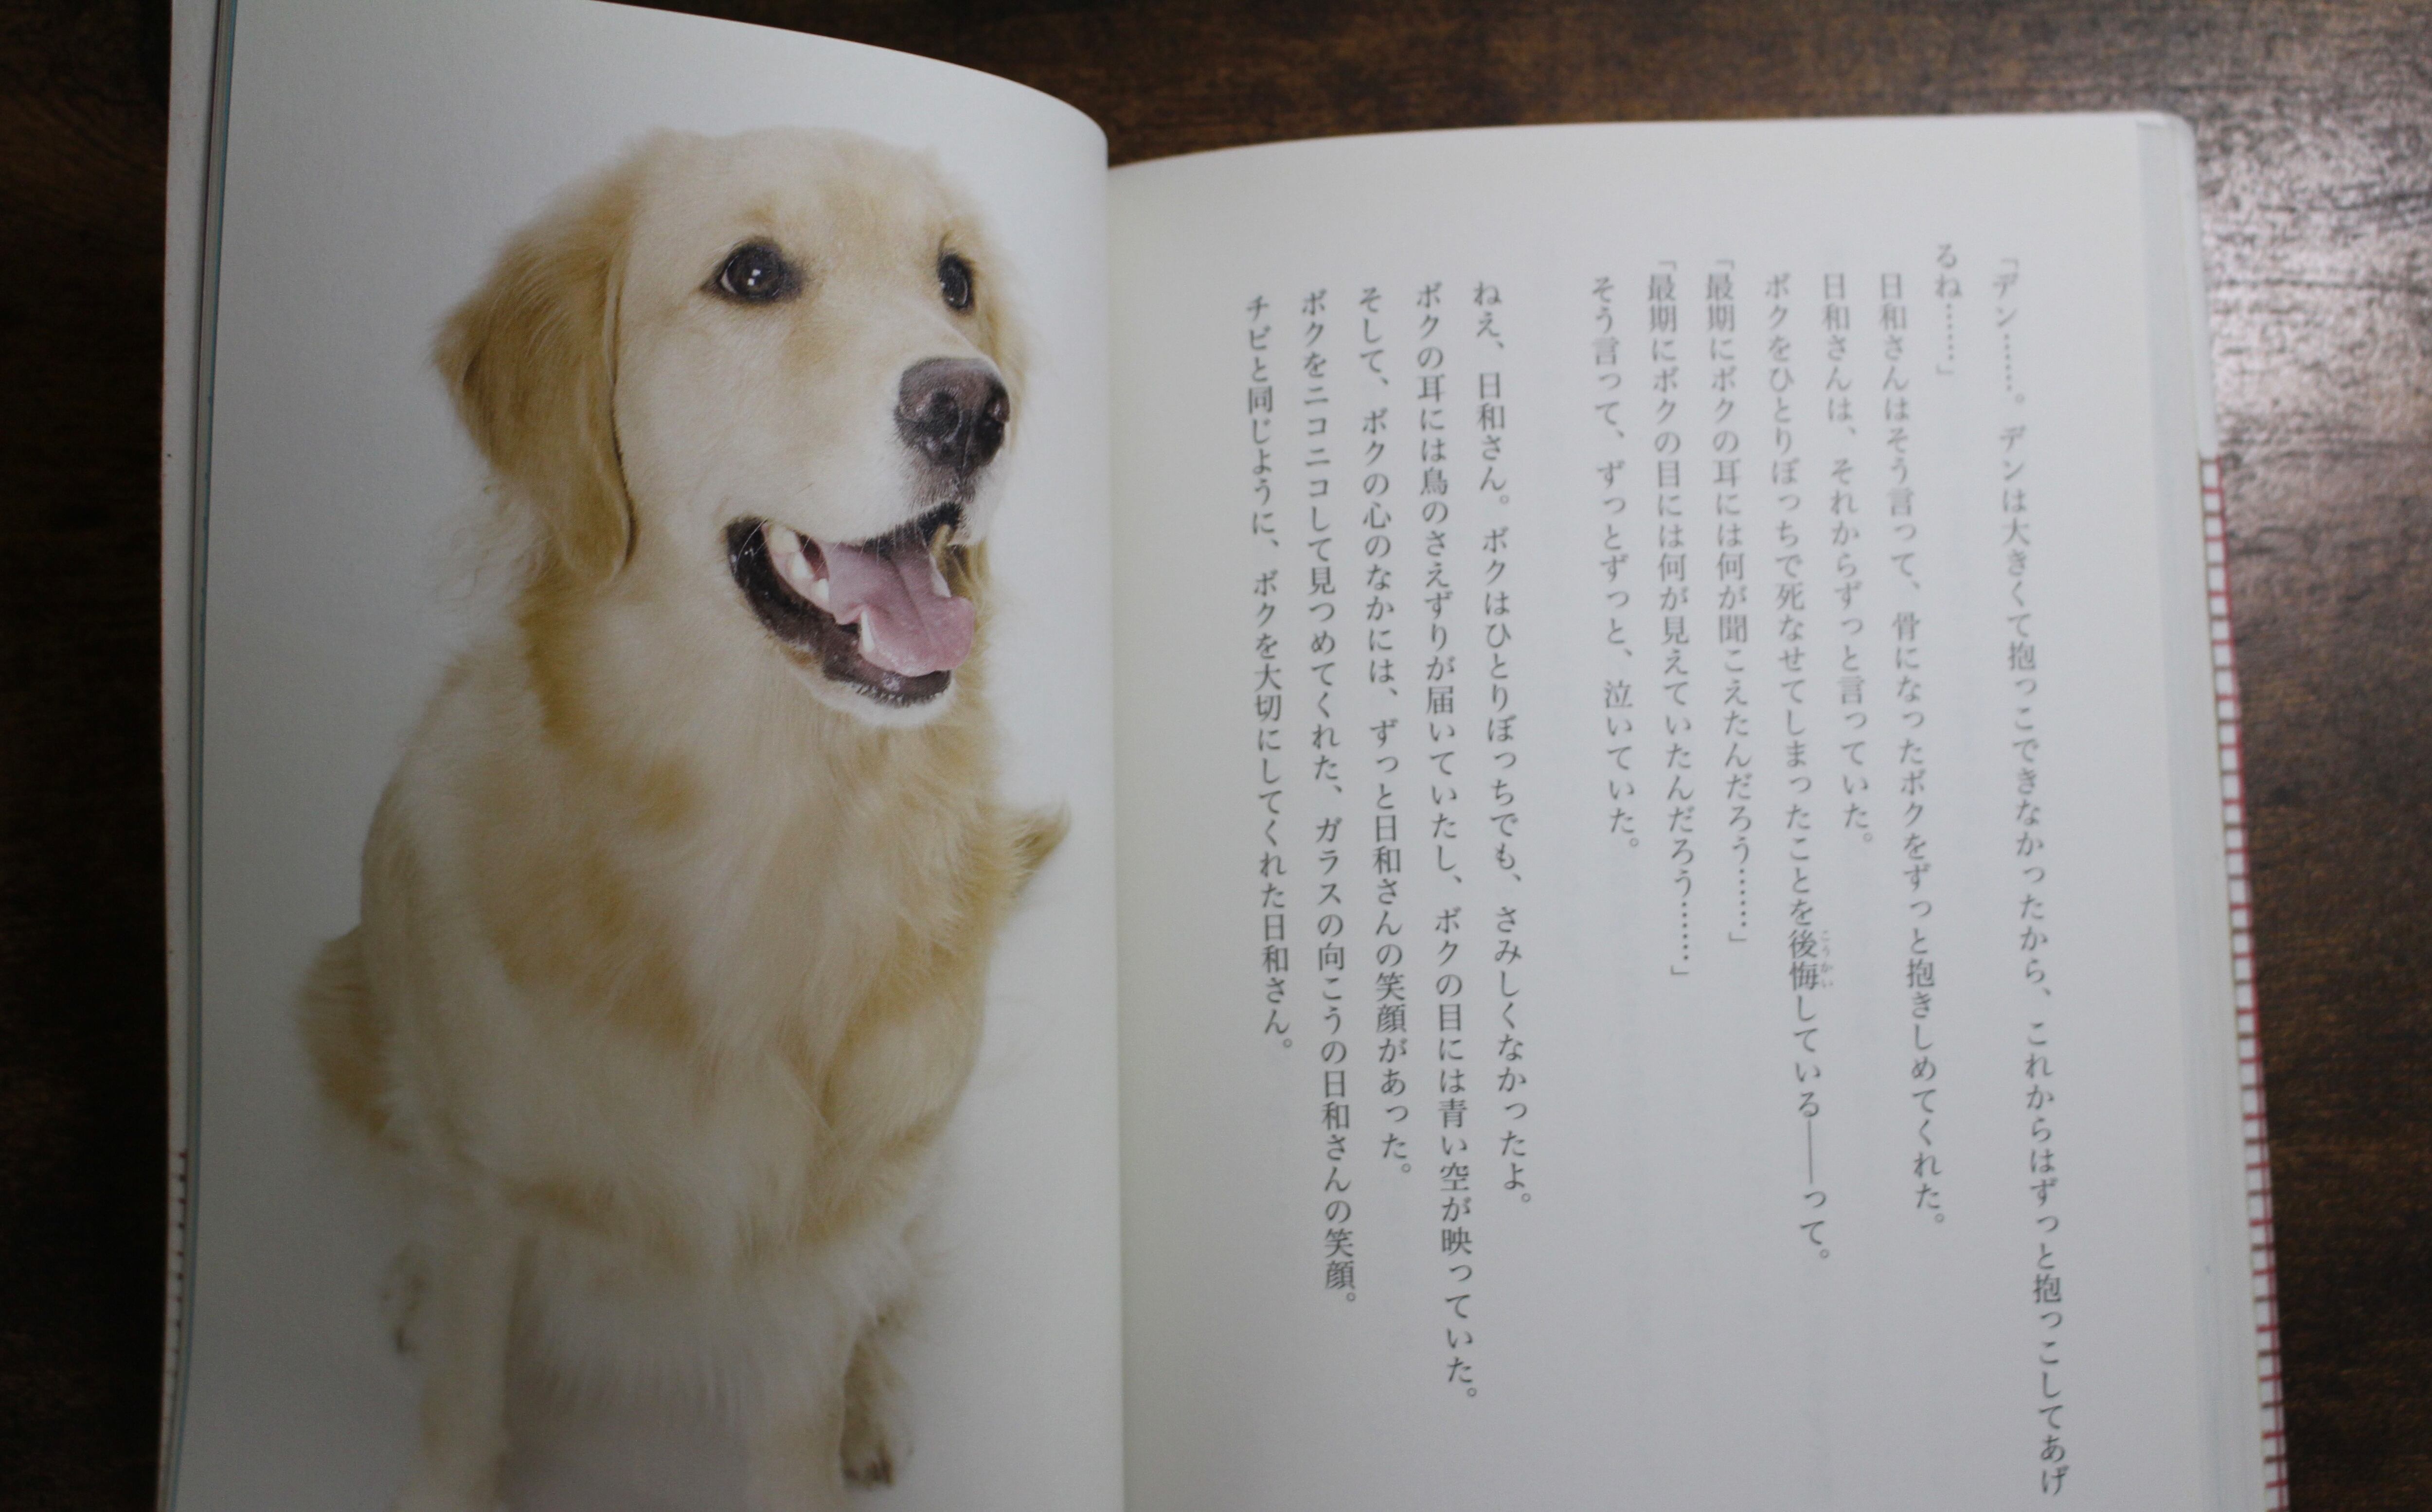 「デン……。デンは大きくて抱っこできなかったから、これからはずっと抱っこしてあげ
るね……」
日和さんはそう言って、骨になったボクをずっと抱きしめてくれた。
日和さんは、それからずっと言っていた。
ボクをひとりぼっちで死なせてしまったことを後悔している――って。
こうかい
「最期にボクの耳には何が聞こえたんだろう……」
「最期にボクの目には何が見えていたんだろう……」
そう言って、ずっとずっと、泣いていた。
ねえ、日和さん。ボクはひとりぼっちでも、さみしくなかったよ。
ボクの耳には鳥のさえずりが届いていたし、ボクの目には青い空が映っていた。
そして、ボクの心のなかには、ずっと日和さんの笑顔があった。
ボクをニコニコして見つめてくれた、ガラスの向こうの日和さんの笑顔。
チビと同じように、ボクを大切にしてくれた日和さん。